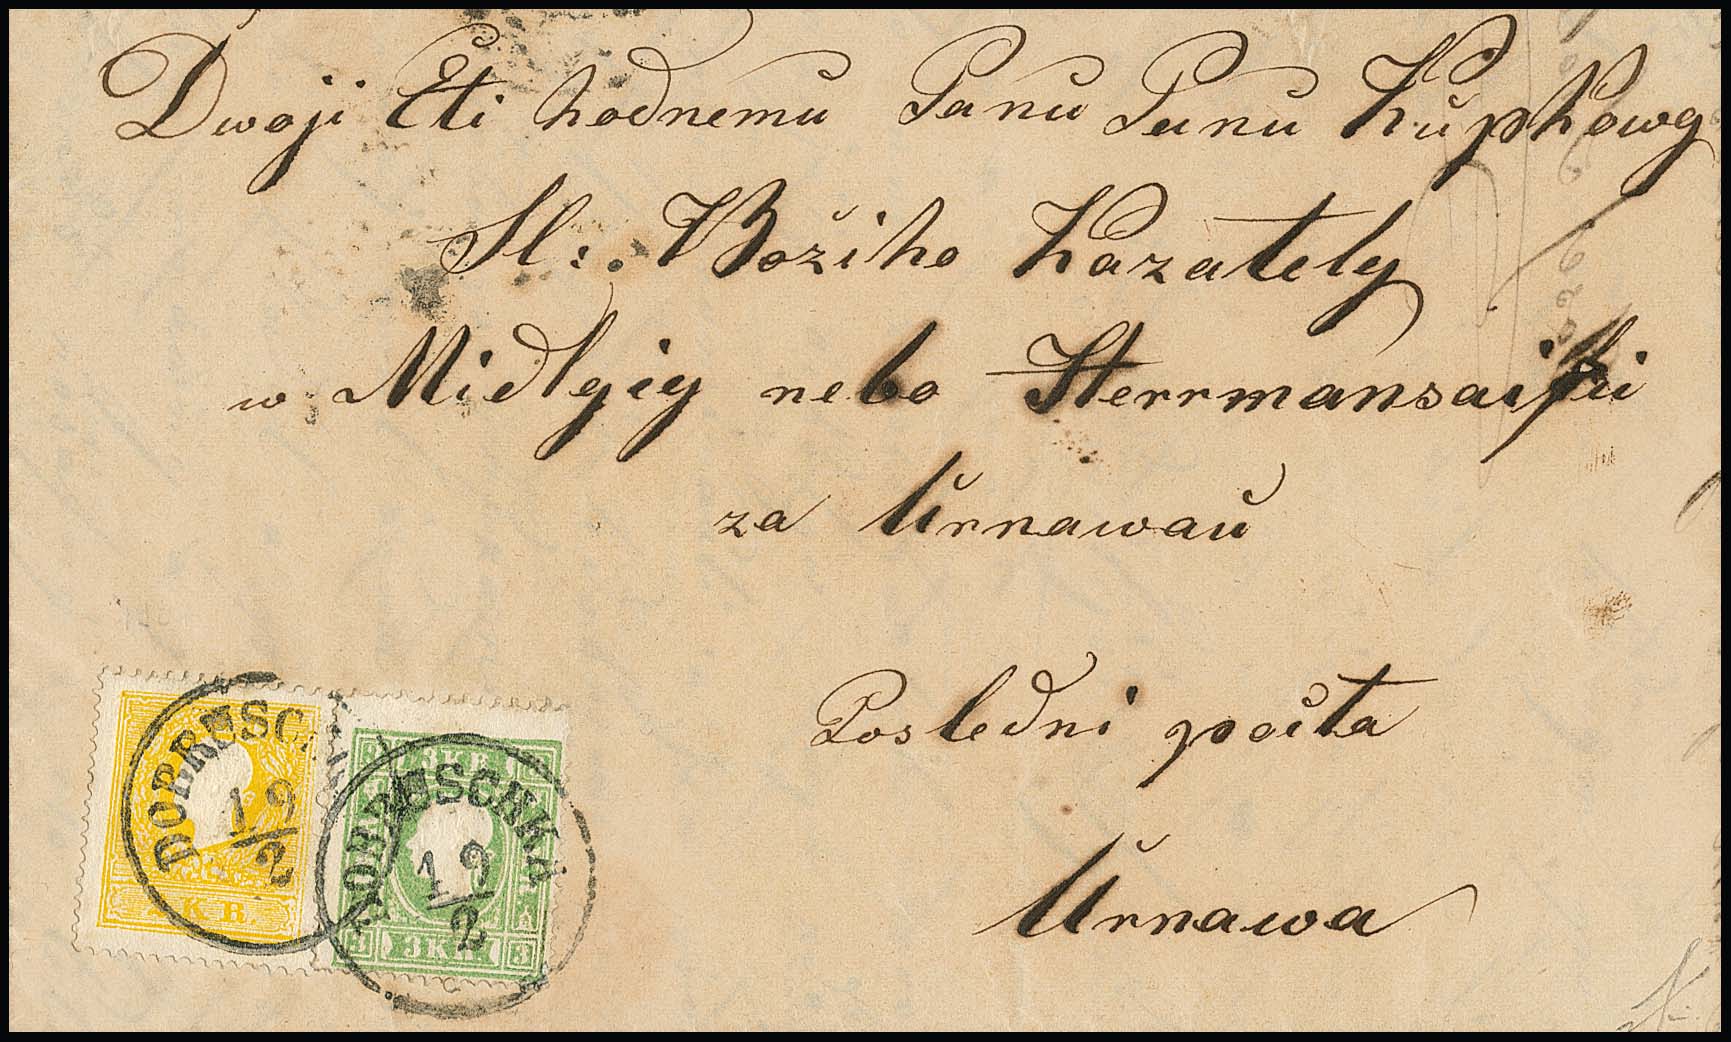 Dwoji Cti hodnemu Panu Panu Kupkowy
Sl: Božiho kazately
w Midlyiy nebo Herrmansaifu
za Trnawaŭ
Posledni pošta
Trnawa
DOBRUSC
19
2
KR.
DOBRUSCHKA
19
2
3 KR
3 KR.
3